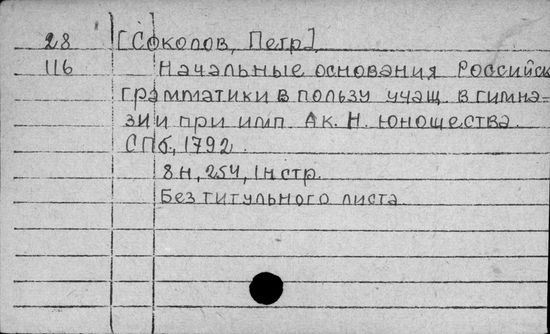 28 [Соколов, Петр]
116 Начальные основания Российск
грамматики в пользу учащ. в гимна-
зии при имп Ак. Н. юношества.
СПб., 1792.
8н, 254, 1н стр.
Без титульного листа